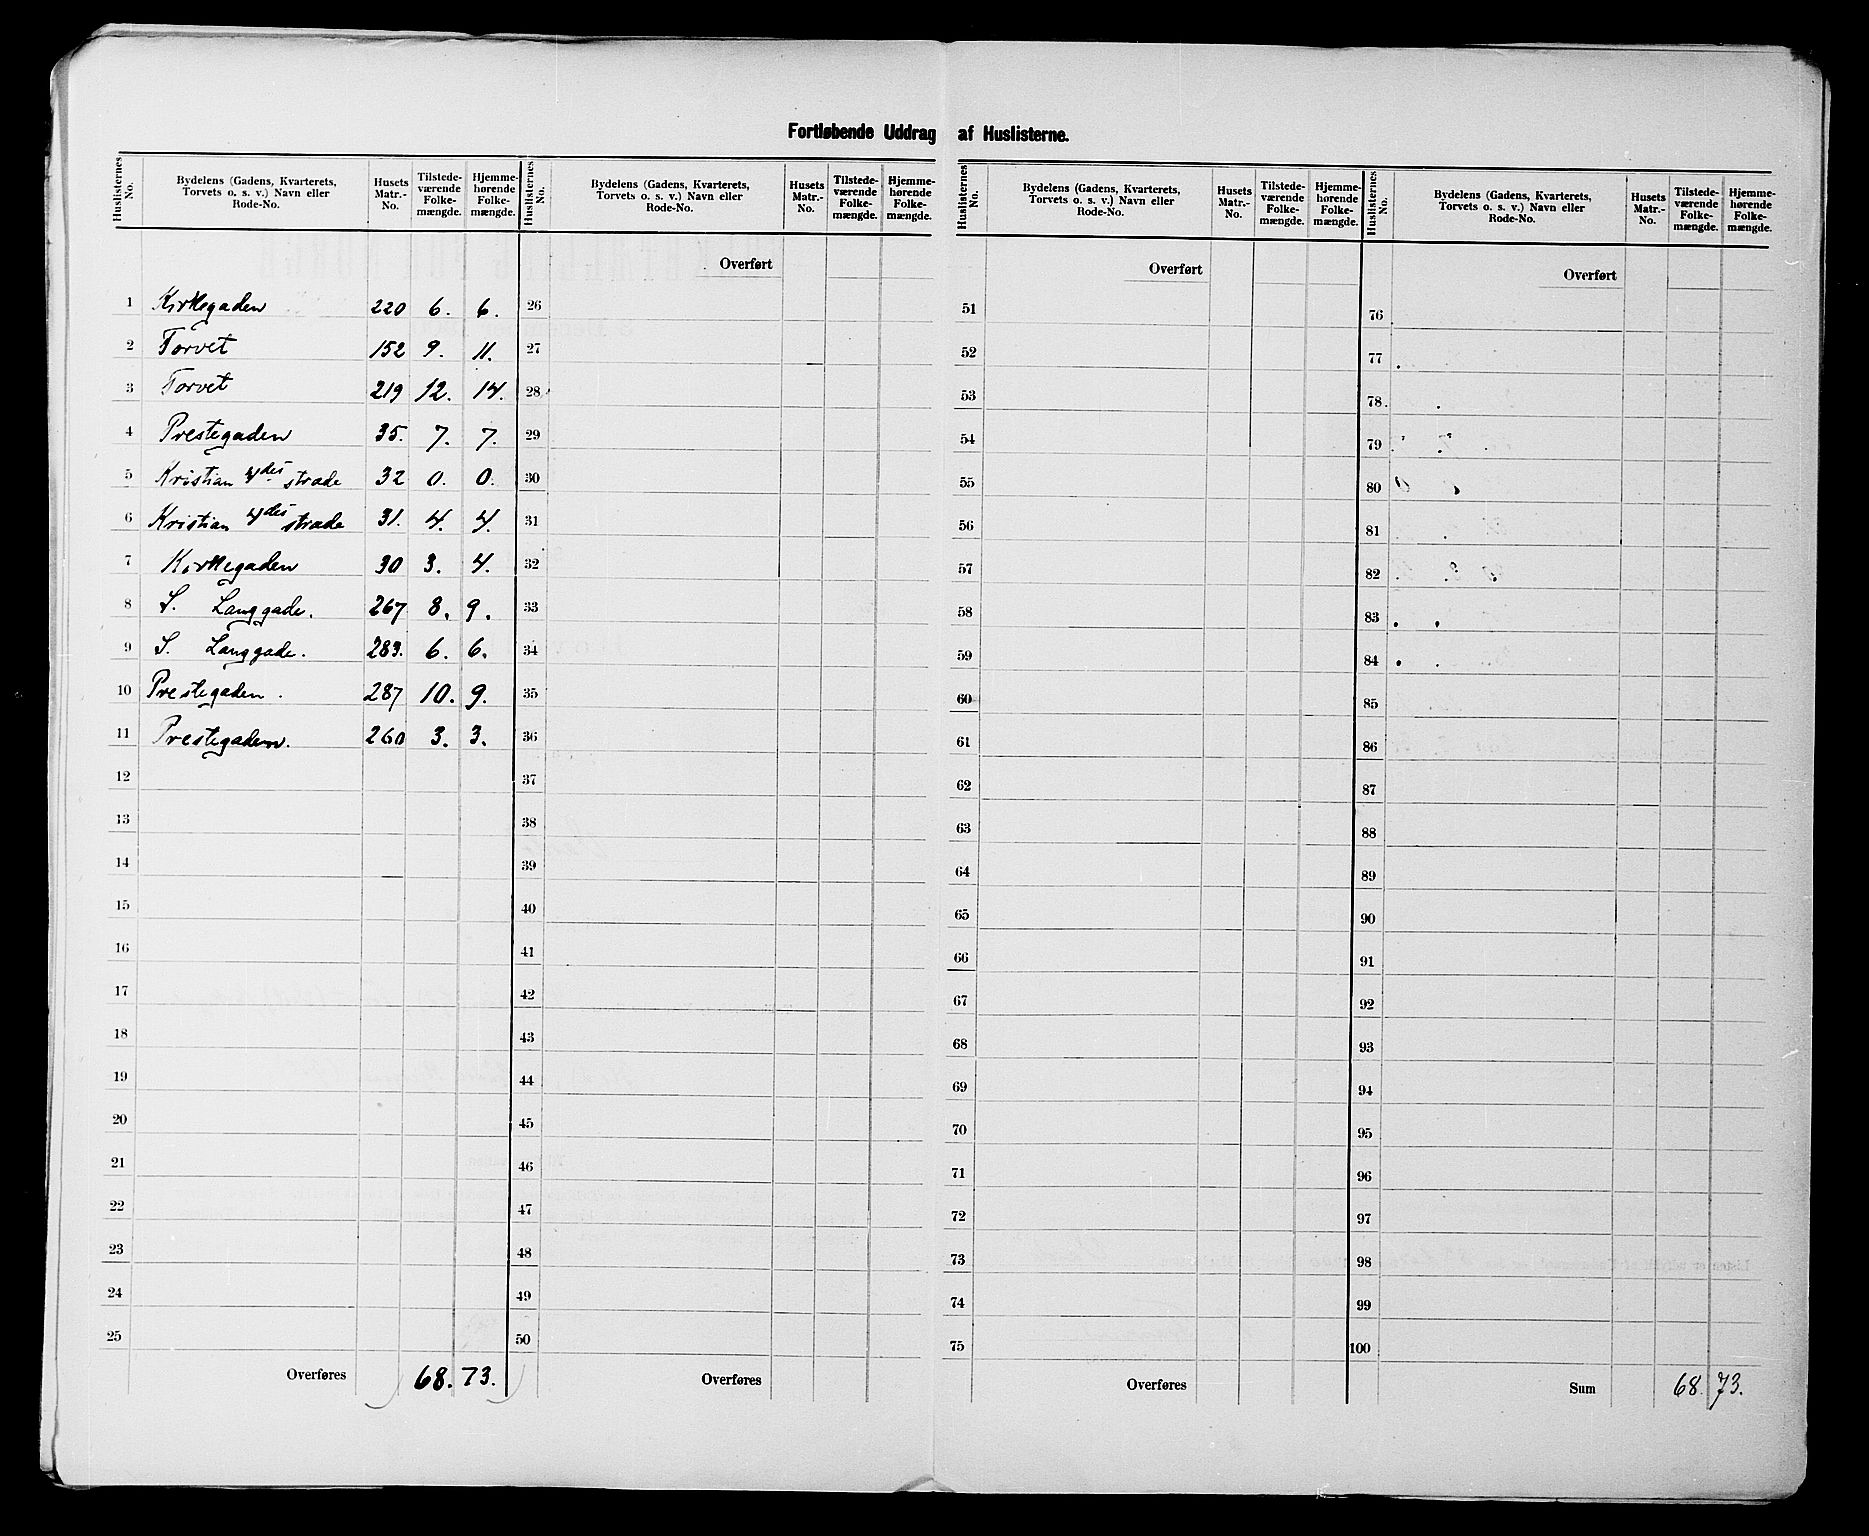 Fortløbende Uddrag af Huslisterne.
Huslisternes No. | Bydelens (Gadens, Kvarterets, Torvets o. s. v.) Navn eller Rode-No. | Husets Matr.-No. | Tilstedeværende Folkemængde. | Hjemmehørende Folkemængde.
Huslisternes No. | Bydelens (Gadens, Kvarterets, Torvets o. s. v.) Navn eller Rode-No. | Husets Matr.-No. | Tilstedeværende Folkemængde. | Hjemmehørende Folkemængde.
Huslisternes No. | Bydelens (Gadens, Kvarterets, Torvets o. s. v.) Navn eller Rode-No. | Husets Matr.-No. | Tilstedeværende Folkemængde. | Hjemmehørende Folkemængde.
Huslisternes No. | Bydelens (Gadens, Kvarterets, Torvets o. s. v.) Navn eller Rode-No. | Husets Matr.-No. | Tilstedeværende Folkemængde. | Hjemmehørende Folkemængde.
1 Kirkegaden 220 6. 6.
2 Torvet 152 9. 11.
3 Torvet 219 12. 14.
4 Prestegaden 35. 7. 7.
5 Kristian 4des stræde 32 0. 0.
6 Kristian 4des stræde 31. 4. 4.
7 Kirkegaden 30 3. 4.
8 S. Langgade. 267 8. 9.
9 S. Langgade. 283. 6. 6.
10 Prestegaden. 287 10. 9.
11 Prestegaden. 260 3. 3.
12
13
14
15
16
17
18
19
20
21
22
23
24
25
Overføres 68. 73.
Overført
26
27
28
29
30
31
32
33
34
35
36
37
38
39
40
41
42
43
44
45
46
47
48
49
50
Overføres
Overført
51
52
53
54
55
56
57
58
59
60
61
62
63
64
65
66
67
68
69
70
71
72
73
74
75
Overføres
Overført
76
77
78
79
80
81
82
83
84
85
86
87
88
89
90
91
92
93
94
95
96
97
98
99
100
Sum 68. 73.